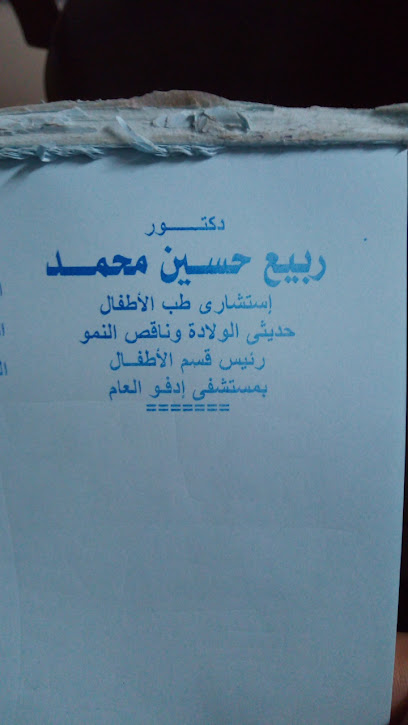 دكتـــور
ربيع حسين محمـد
إستشارى طب الأطفال
حديثى الولادة وناقص النمو
رئيس قسم الأطفـال
بمستشفى إدفـو العام
=======